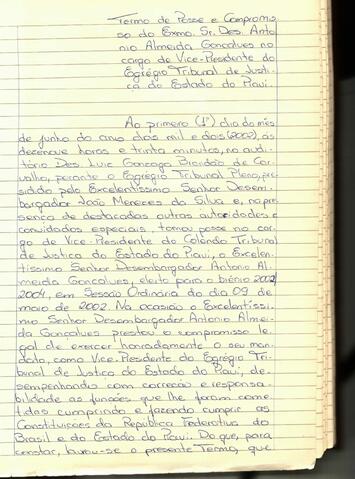 Termo de Posse e Compromis
so do Exmo. Sr. Des. Anto
nio Almeida Goncalves no
cargo de Vice-Presidente do
Egrégio Tribunal de Justi-
ça do Estado do Piauí.
Ao primeiro (1º) dia do mês
de junho do ano dois mil e dois (2002), às
dezenove horas e trinta minutos, no audi-
tório Des. Luiz Gonzaga Brandão de Car-
valho, perante o Egrégio Tribunal Pleno, pre-
sidido pelo Excelentíssimo Senhor Desem-
bargador João Menezes da Silva e, na pre-
sença de destacadas outras autoridades e
convidados especiais, tomou posse no car-
go de Vice-Presidente do Colendo Tribunal
de Justiça do Estado do Piauí, o Excelen-
tíssimo Senhor Desembargador Antonio Al-
meida Goncalves, eleito para o biênio 2002/
2004, em Sessão Ordinária do dia 09 de
maio de 2002. Na ocasião o Excelentíssi-
mo Senhor Desembargador Antonio Almei-
da Goncalves prestou o compromisso le-
gal de exercer honradamente o seu man-
dato, como Vice-Presidente do Egrégio Tri-
bunal de Justiça do Estado do Piauí, de-
sempenhando com correção e responsa-
bilidade as funções que lhe foram come-
tidas cumprindo e fazendo cumprir as
Constituições da República Federativa do
Brasil e do Estado do Piauí. Do que, para
constar, lavrou-se o presente Termo, que